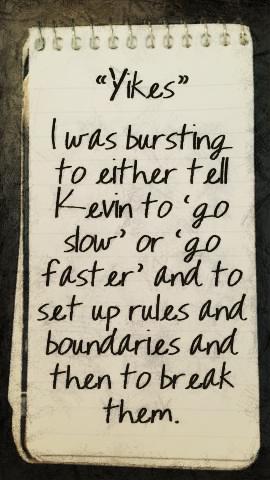 “Yikes”
I was bursting
to either tell
Kevin to ‘go
slow’ or ‘go
faster’ and to
set up rules and
boundaries and
then to break
them.